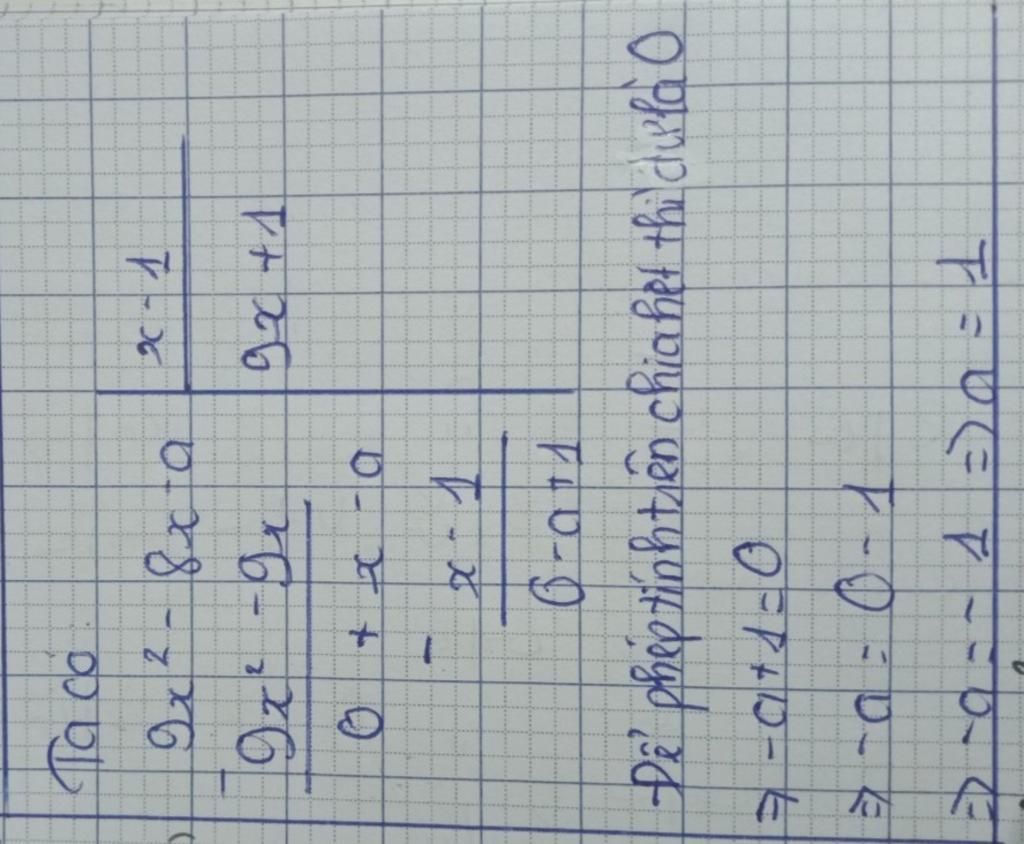 Ta có
9x² - 8x - a | x - 1
- 9x² - 9x | 9x + 1
0 + x - a
- x - 1
0 - a + 1
Để phép tính trên chia hết thì dư là 0
⇒ - a + 1 = 0
⇒ - a = 0 - 1
⇒ - a = - 1 ⇒ a = 1